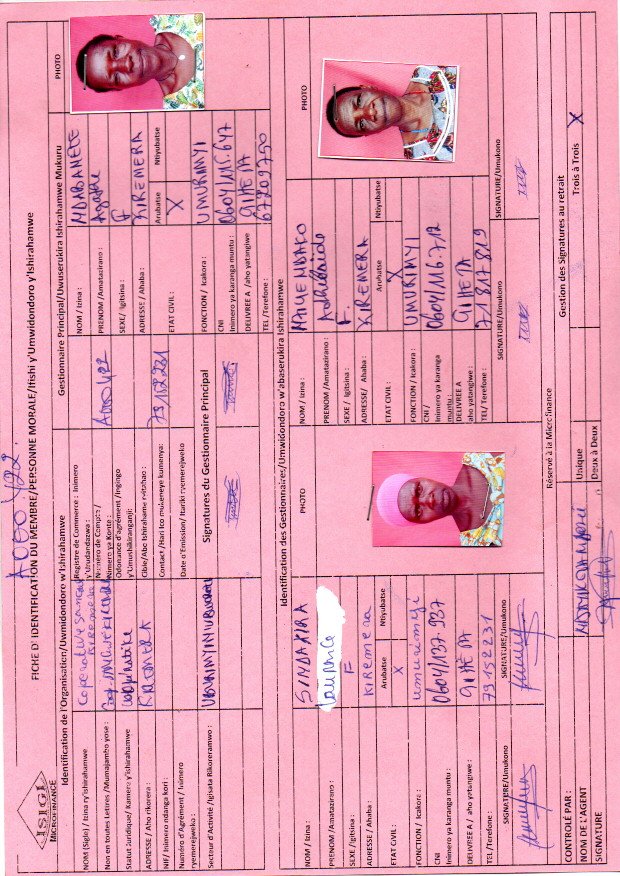 A000 422
FICHE D' IDENTIFICATION DU MEMBRE/PERSONNE MORALE/Ifishi y'Umwidondoro y'Ishirahamwe
ISIGI
MICROFINANCE
Identification de l'Organisation/Uwmidondoro w'Ishirahamwe
NOM (Sigle) / Izina ry'ishirahamwe
Non en toutes Letrres /Mumajambo yose :
Statut Juridique/ Kamere y'ishirahamwe
ADRESSE / Aho rikorera :
KIREMERA
NIF/ Inimero ndanga kori :
Numéro d'Agrément / Inimero
ryemerejweko :
Secteur d'Activité /Igisata Rikoreramwo :
Registre de Commerce : Inimero
y'Urudandazwa :
Numéro de Compte /
Nimero ya Konte :
A000 422
Odonance d'agrément /Ingingo
y'Umushikiranganji:
Cible/Abo Ishirahame ryitaho :
Contact /Hari ico mukeneye kumenya:
79152231
Date o'Emission/ Itariki ryemerejweko
Signatures du Gestionnaire Principal
Gestionnaire Principal/Uwuserukira Ishirahamwe Mukuru
PHOTO
NOM / Izina :
NDABANEZE
PRENOM /Amatazirano :
Agathe
SEXE/ Igitsina :
F
ADRESSE / Ahaba :
KIREMERA
ETAT CIVIL :
Arubatse
Ntiyubatse
X
FONCTION / Icakora :
UMURIMYI
CNI
Inimero ya karanga muntu :
0604/115.647
DELIVREE A /aho yatangiwe
GIHETA
TEL /Terefone :
67209750
Identification des Gestionnaires/Umwidondoro w'abaserukira Ishirahamwe
NOM / Izina :
SINDAKIRA
PHOTO
PRENOM /Amatazirano :
Laurence
SEXE /Igitsina :
F
ADRESSE / Ahaba :
Kiremera
ETAT CIVIL :
Arubatse
Ntiyubatse
X
FONCTION / Icakora :
umurimyi
CNI
Inimero ya karanga muntu :
0604/137.937
DELIVREE A / aho yatangiwe :
GIHETA
TEL /Terefone :
79152231
SIGNATURE/Umukono
SIGNATURE/Umukono
NOM / Izina :
PHOTO
PRENOM /Amatazirano :
SEXE / Igitsina :
F.
ADRESSE/ Ahaba :
KIREMERA
ETAT CIVIL :
Arubatse
Ntiyubatse
X
FONCTION / Icakora :
UMURIMYI
CNI /
Inimero ya karanga
muntu :
0604/116.712
DELIVREE A
aho yatangiwe :
GIHETA
TEL/ Terefone :
71847819
SIGNATURE/Umukono
SIGNATURE/Umukono
Réservé à la Microfinance
CONTROLÉ PAR :
NOM DE L'AGENT
SIGNATURE
Unique
Deux à Deux
Gestion des Signatures au retrait
Trois à Trois
X